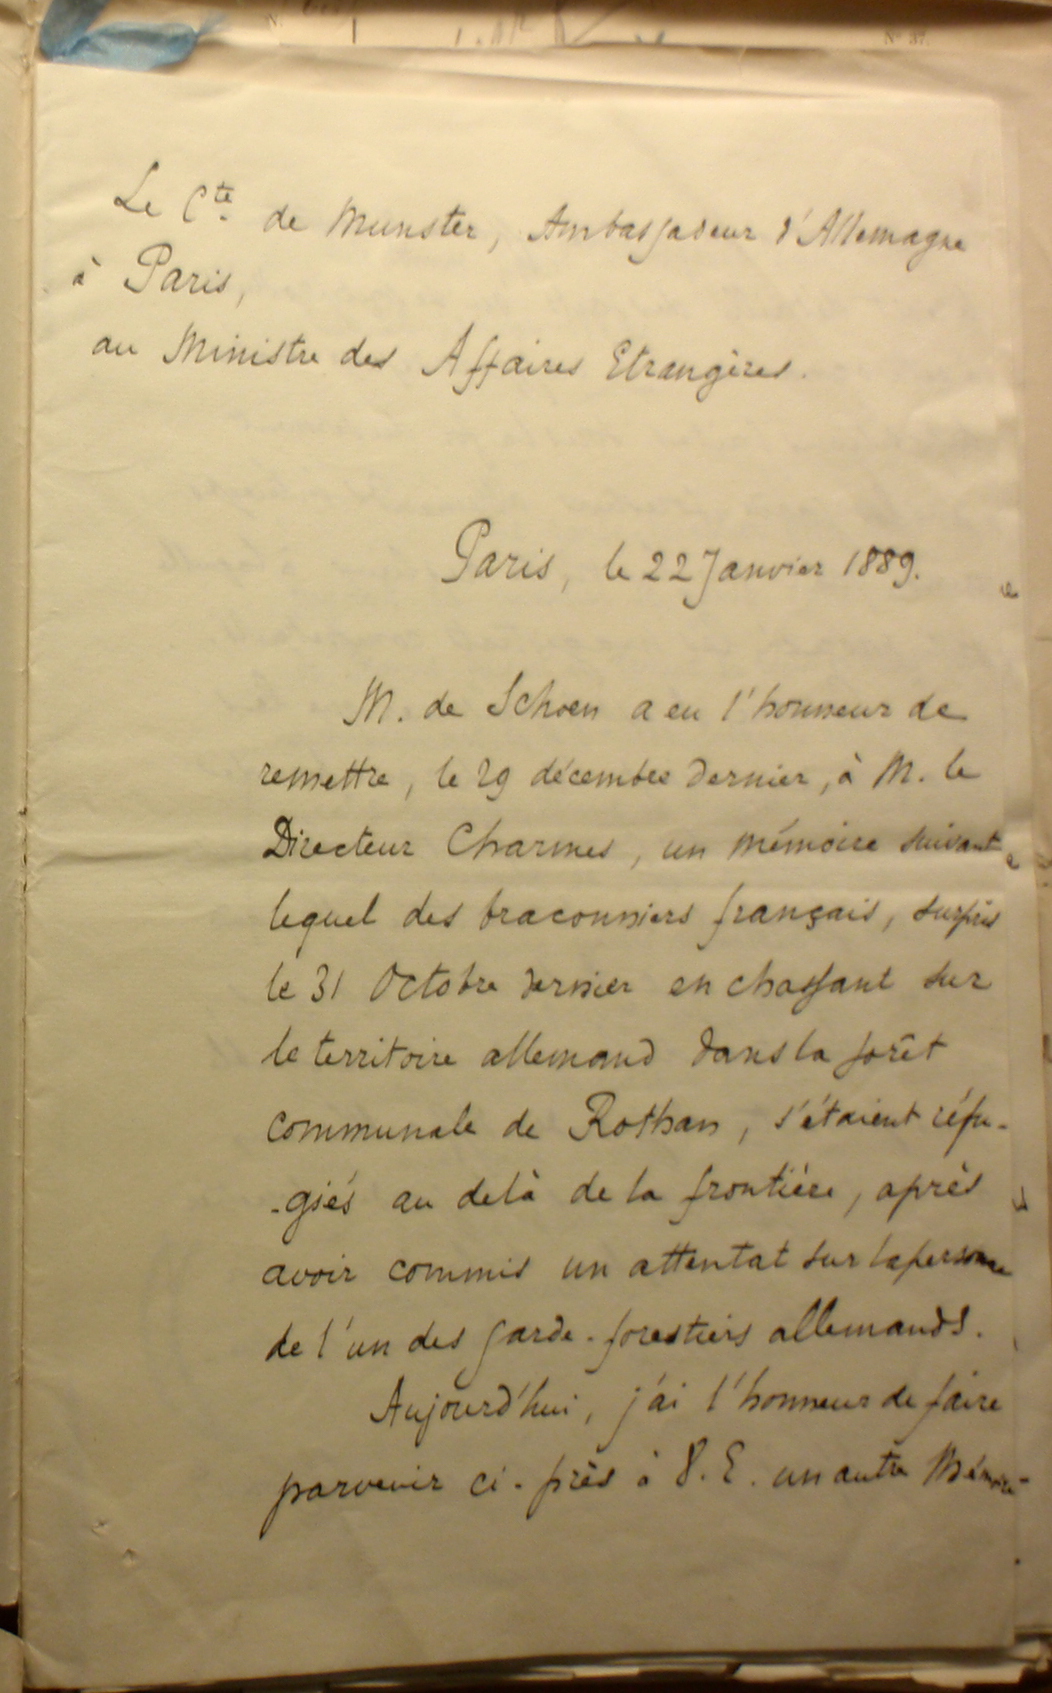 Nº 37.
Le Cte de Munster, Ambassadeur d'Allemagne
à Paris,
au Ministre des Affaires Etrangères.
Paris, le 22 Janvier 1889.
M. de Schoen a eu l'honneur de
remettre, le 29 décembre dernier, à M. le
Directeur Charmes, un mémoire suivant
lequel des braconniers français, surpris
le 31 Octobre dernier en chassant sur
le territoire allemand dans la forêt
communale de Rothan, s'étaient réfu-
-giés au delà de la frontière, après
avoir commis un attentat sur la personne
de l'un des garde-forestiers allemands.
Aujourd'hui, j'ai l'honneur de faire
parvenir ci-près à V. E. un autre Mémoire